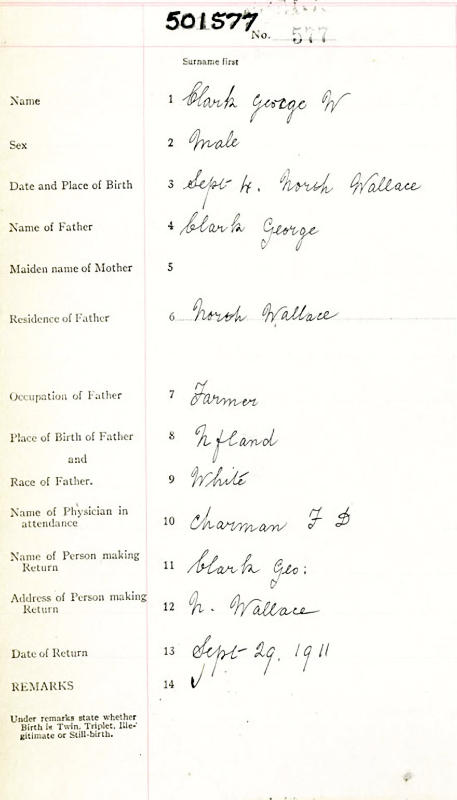 501577
No. 577
Surname first
Name 1 Clark George W
Sex 2 Male
Date and Place of Birth 3 Sept 4. North Wallace
Name of Father 4 Clark George
Maiden name of Mother 5
Residence of Father 6 North Wallace
Occupation of Father 7 Farmer
Place of Birth of Father 8 Nfland
and
Race of Father. 9 White
Name of Physician in
attendance 10 Charman F D
Name of Person making
Return 11 Clark Geo:
Address of Person making
Return 12 N. Wallace
Date of Return 13 Sept 29. 1911
REMARKS 14 ✓
Under remarks state whether
Birth is Twin, Triplet, Ille-
gitimate or Still-birth.